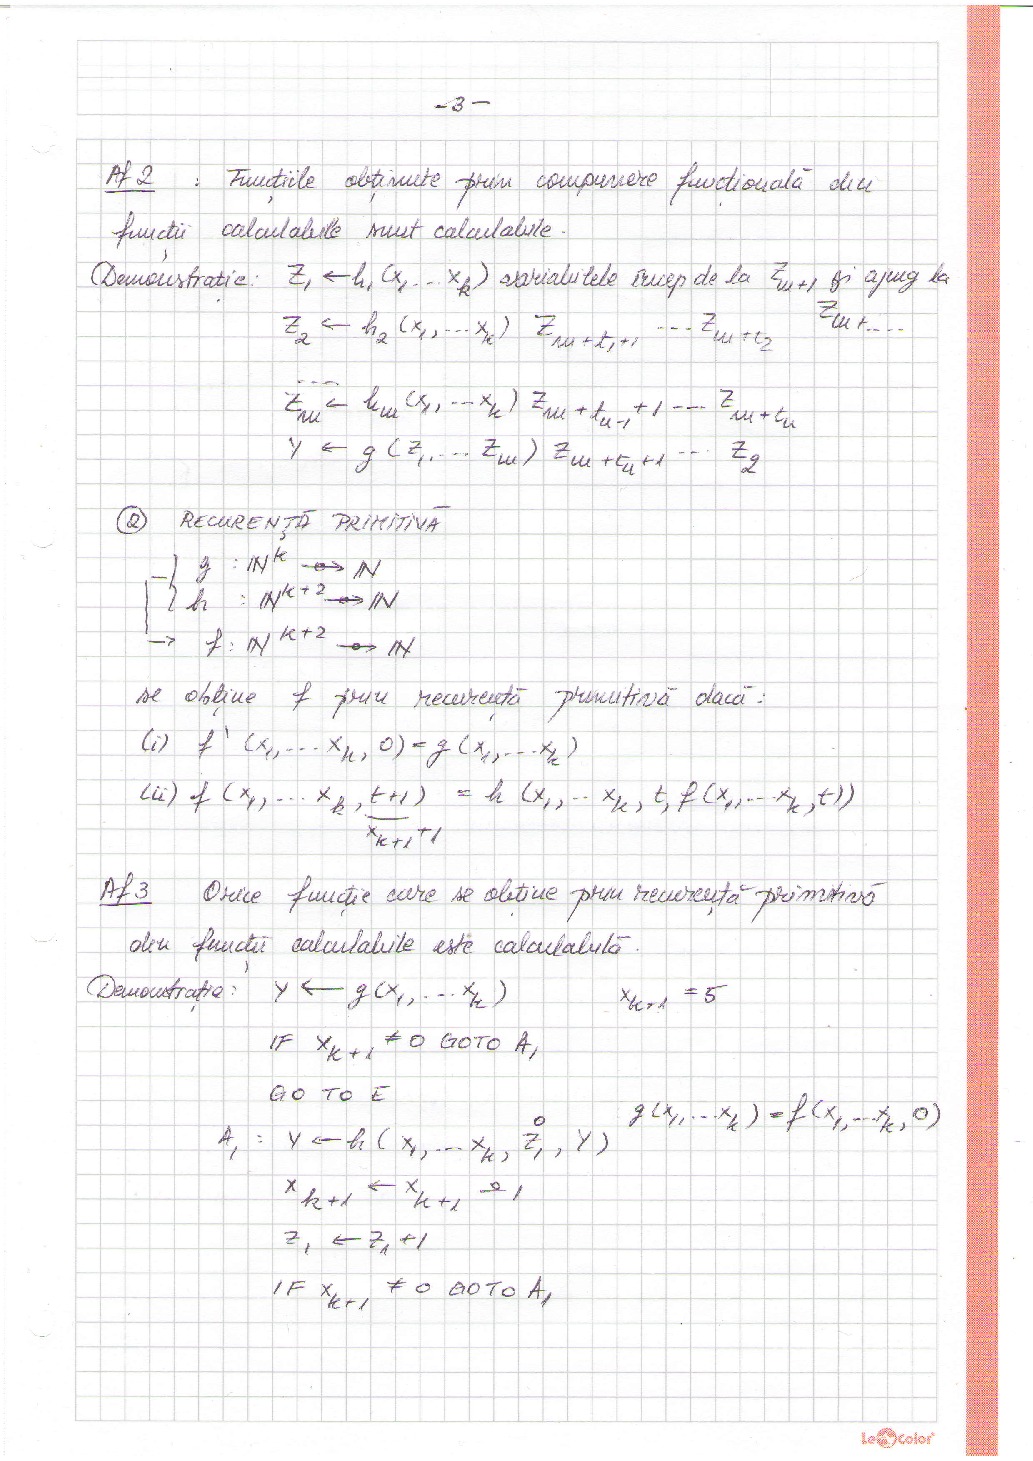 -3-
Af 2 : Funcțiile obținute prin compunere funcțională din
funcții calculabile sunt calculabile.
Demonstrație: Z₁ ← h₁(x₁...xₖ) variabilele încep de la Zₘ₊₁ și ajung la
Zₘ₊....
Z₂ ← h₂(x₁,...xₖ) Z_{m+t₁+1} ... Z_{m+t₂}
....
Zₘ ← hₘ(x₁,...xₖ) Z_{m+t_{n-1}+1} ... Z_{m+tₙ}
Y ← g(Z₁,...Zₘ) Z_{m+tₙ+1} ... Z_g
② RECURENȚĂ PRIMITIVĂ
g : ℕᵏ ⇸ ℕ
h : ℕᵏ⁺² ⇸ ℕ
→ f : ℕᵏ⁺² ⇸ ℕ
se obține f prin recurență primitivă dacă:
(i) f (x₁,...xₖ,0)=g(x₁,...xₖ)
(ii) f (x₁,...xₖ,t+1) = h (x₁,..xₖ,t,f(x₁,...xₖ,t))
xₖ₊₁+1
Af 3 Orice funcție care se obține prin recurență primitivă
din funcții calculabile este calculabilă.
Demonstrația: Y ← g(x₁,...xₖ) xₖ₊₁ = 5
IF xₖ₊₁ ≠ 0 GOTO A₁
GO TO E
g(x₁,...xₖ)=f(x₁,...xₖ,0)
0
A₁ : Y ← h(x₁,...xₖ,Z₁,Y)
xₖ₊₁ ← xₖ₊₁ ∸ 1
Z₁ ← Z₁+1
IF xₖ₊₁ ≠ 0 GOTO A₁
LeColor